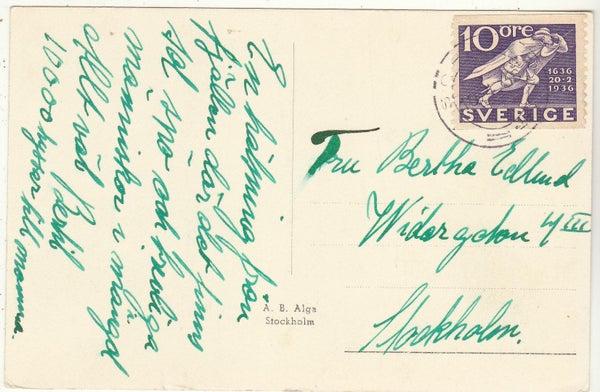 En hälsning från
fjällen där det finns
sol, snö och trevliga
människor i mängd
Allt väl
1000 kyssar till mamma.
A. B. Alga
Stockholm
10 öre
1636
20-2
1936
SVERIGE
Fru Bertha Edlund
4 III
Stockholm.